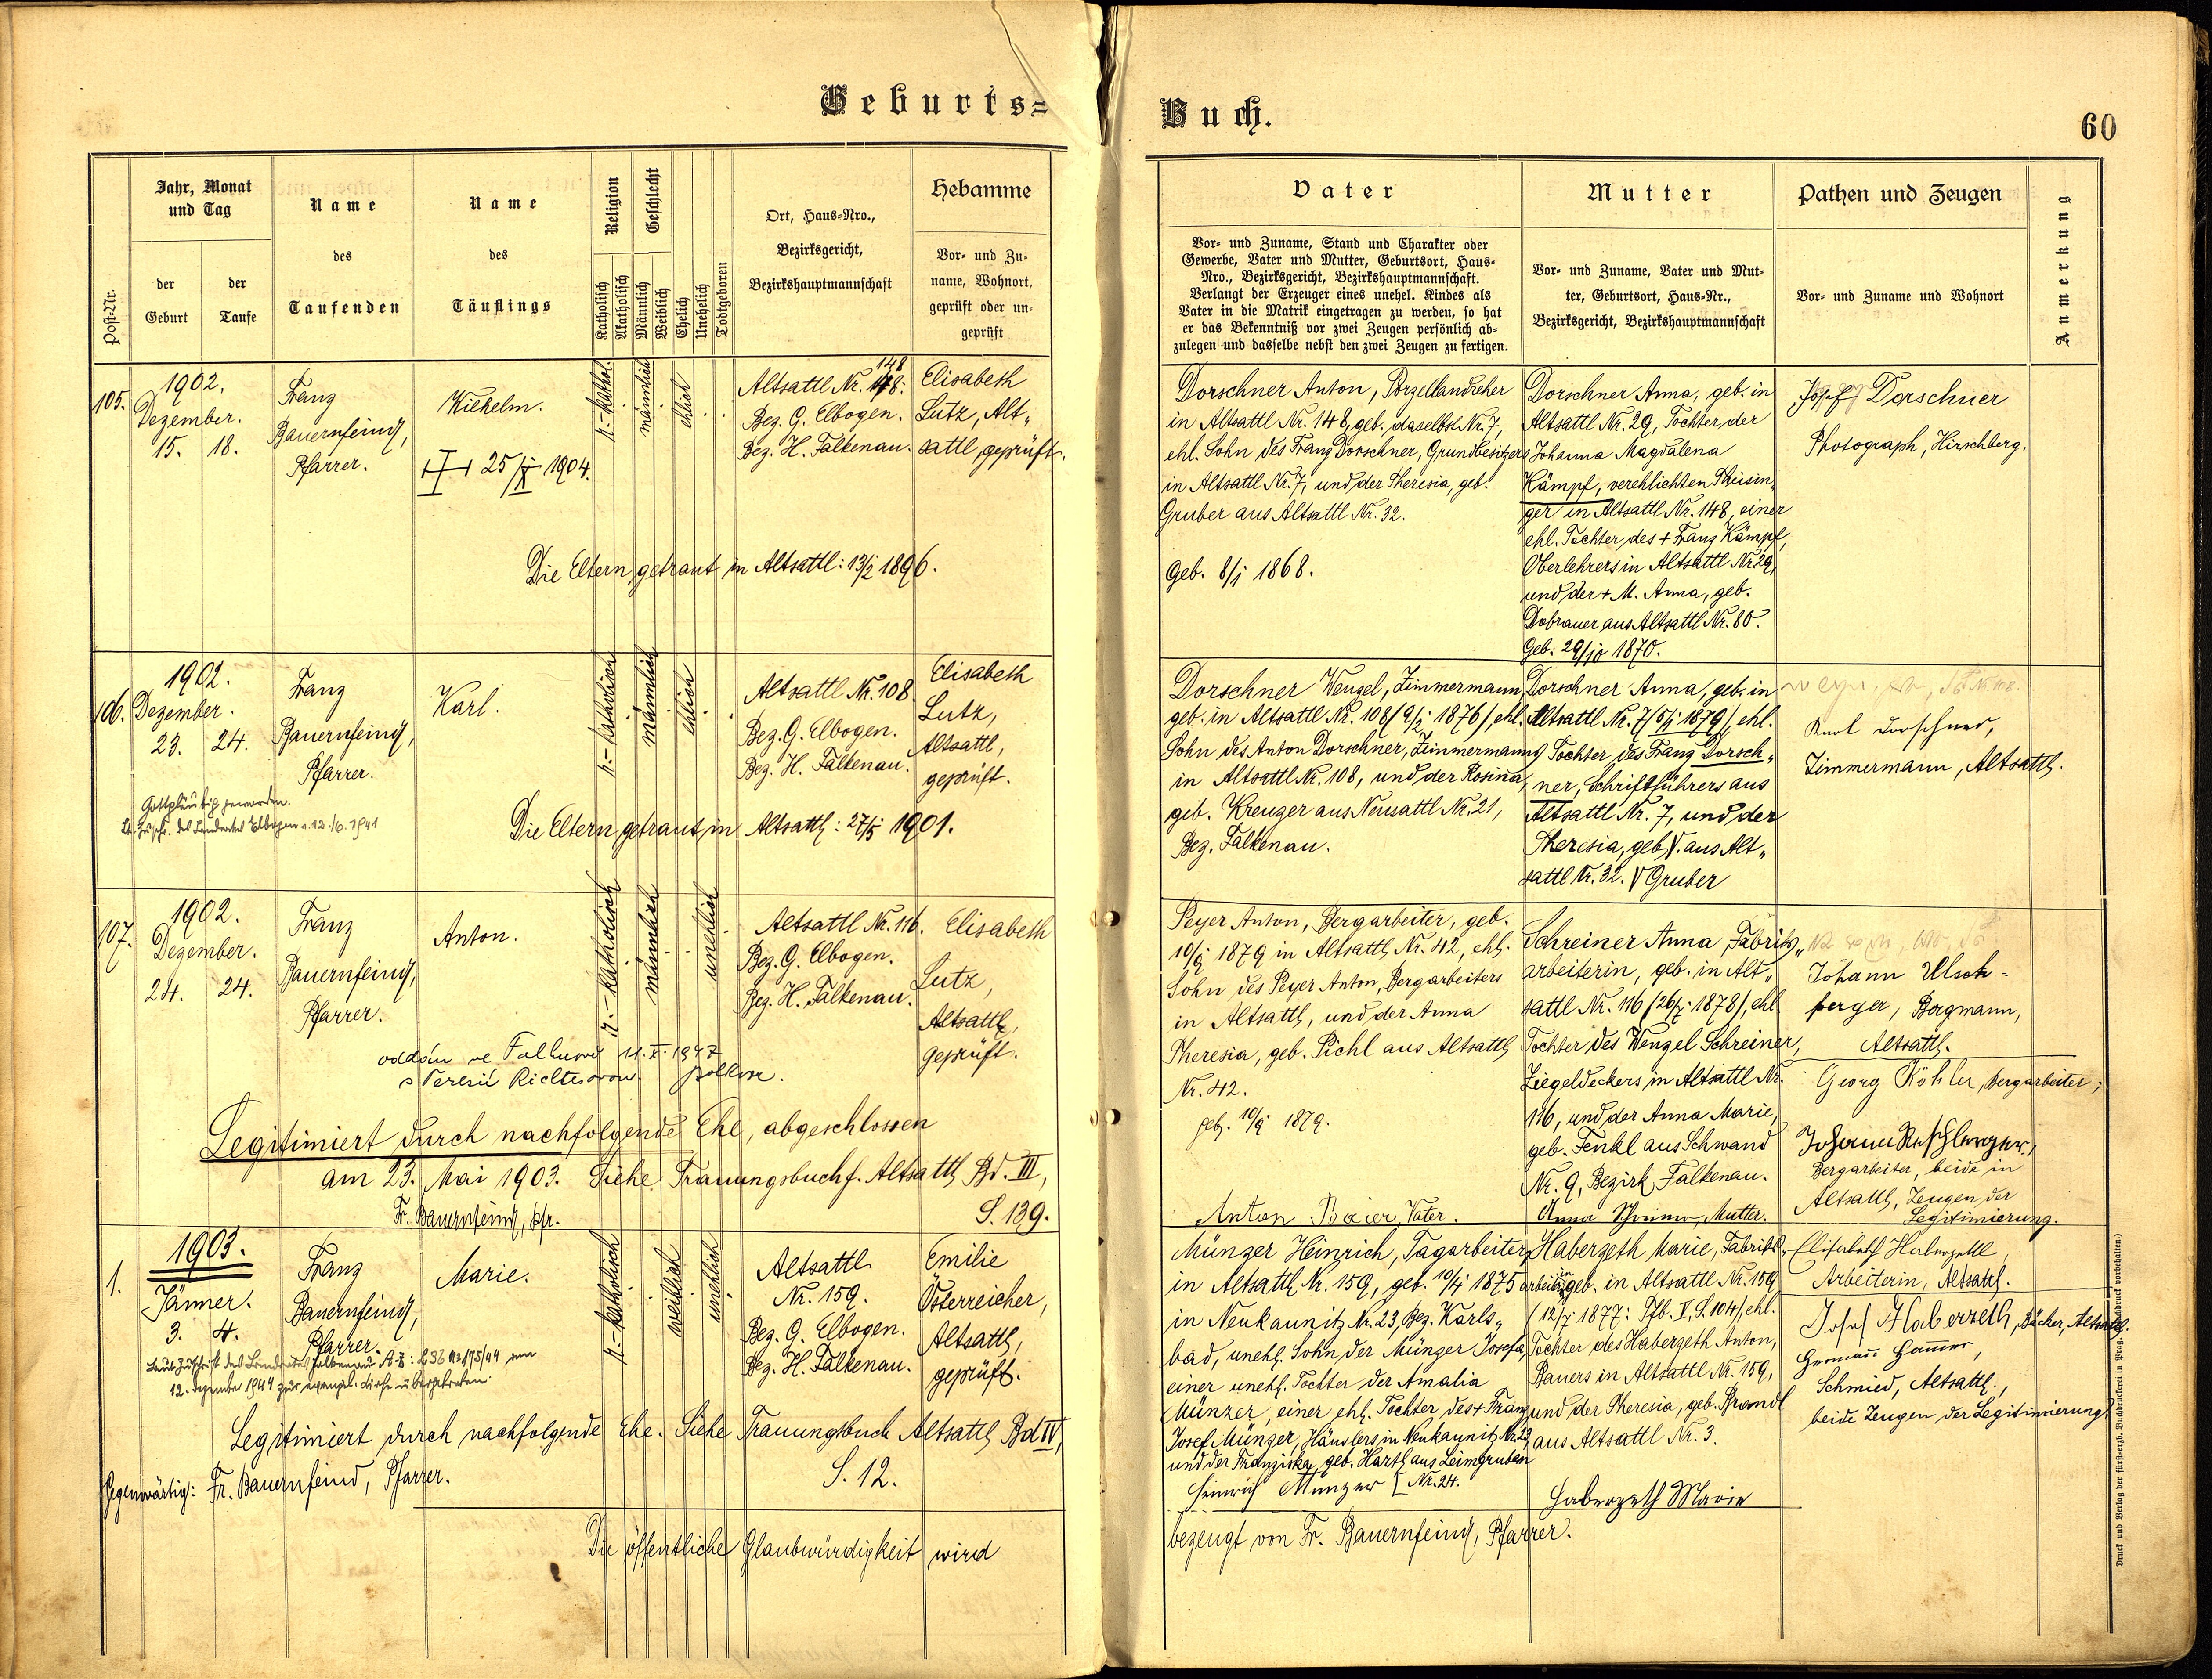 Geburts=
Buch.
60
Post-Nr.
Jahr, Monat
und Tag
der
Geburt
der
Taufe
Name
des
Taufenden
Name
des
Täuflings
Religion
Katholisch
Akatholisch
Geschlecht
Männlich
Weiblich
Ehelich
Unehelich
Todtgeboren
Ort, Haus-Nro.,
Bezirksgericht,
Bezirkshauptmannschaft
Hebamme
Vor- und Zu-
name, Wohnort,
geprüft oder un-
geprüft
Vater
Vor- und Zuname, Stand und Charakter oder
Gewerbe, Vater und Mutter, Geburtsort, Haus-
Nro., Bezirksgericht, Bezirkshauptmannschaft.
Verlangt der Erzeuger eines unehel. Kindes als
Vater in die Matrik eingetragen zu werden, so hat
er das Bekenntniß vor zwei Zeugen persönlich ab-
zulegen und dasselbe nebst den zwei Zeugen zu fertigen.
Mutter
Vor- und Zuname, Vater und Mut-
ter, Geburtsort, Haus-Nr.,
Bezirksgericht, Bezirkshauptmannschaft
Pathen und Zeugen
Vor- und Zuname und Wohnort
Anmerkung
105.
1902.
Dezember.
15. 18.
Franz
Bauernfeind,
Pfarrer.
Wilhelm.
25/X 1904.
r.-kathol.
männlich
ehelich
148
Altsattl Nr. 148:
Bez. G. Elbogen.
Bez. H. Falkenau.
Elisabeth
Lutz, Alt„
sattl geprüft.
Die Eltern getraut in Altsattl: 13/2 1896.
Dorschner Anton, Porzellandreher
in Altsattl Nr. 148, geb. daselbst Nr. 7,
ehl. Sohn des Franz Dorschner, Grundbesitzers
in Altsattl Nr. 7, und der Theresia, geb.
Gruber aus Altsattl Nr. 32.
Geb. 8/j 1868.
Dorschner Anna, geb. in
Altsattl Nr. 29, Tochter der
Johanna Magdalena
Kämpf, verehlichten Theisin„
ger in Altsattl Nr. 148, einer
ehl. Tochter des + Franz Kämpf,
Oberlehrers in Altsattl Nr. 29,
und der + M. Anna, geb.
Dobrauer aus Altsattl Nr. 80.
Geb. 29/10 1870.
Josef Dorschner
Photograph, Hirschberg.
106.
1902.
Dezember.
23. 24.
Franz
Bauernfeind,
Pfarrer.
Karl.
r.-katholisch
männlich
ehelich
Altsattl Nr. 108
Bez. G. Elbogen.
Bez. H. Falkenau.
Elisabeth
Lutz,
Altsattl,
geprüft.
Gottgläubig geworden.
Lt. Zusch. des Landrates Elbogen v. 12./6. 1941
Die Eltern getraut in Altsattl: 27/5 1901.
Dorschner Wenzel, Zimmermann,
geb. in Altsattl Nr. 108 /9/j 1876/, ehl.
Sohn des Anton Dorschner, Zimmermanns
in Altsattl Nr. 108, und der Rosina,
geb. Kreuzer aus Neusattl Nr. 21,
Bez. Falkenau.
Dorschner Anna, geb. in
Altsattl Nr. 7 /5/j 1879/, ehl.
Tochter des Franz Dorsch„
ner, Schriftführers aus
Altsattl Nr. 7, und der
Theresia, geb. V. aus Alt„
sattl Nr. 32. V Gruber
Karl Dorschner,
Zimmermann, Altsattl.
107.
1902.
Dezember.
24. 24.
Franz
Bauernfeind,
Pfarrer.
Anton.
r.-katholisch
männlich
unehelich
Altsattl Nr. 116.
Bez. G. Elbogen.
Bez. H. Falkenau.
Elisabeth
Lutz,
Altsattl,
geprüft.
oddán ve Falknově 11. X. 1947
s Teresií Richterovou.
Legitimiert durch nachfolgende Ehe, abgeschlossen
am 23. Mai 1903. Siehe Trauungsbuch f. Altsattl Bd. III,
Fr. Bauernfeind, Pfr.
S. 139.
Peyer Anton, Bergarbeiter, geb.
10/9 1879 in Altsattl Nr. 42, ehl.
Sohn des Peyer Anton, Bergarbeiters
in Altsattl, und der Anna
Theresia, geb. Pichl aus Altsattl
Nr. 42.
geb. 10/9 1879.
Anton Baier, Vater.
Schreiner Anna, Fabriks„
arbeiterin, geb. in Alt„
sattl Nr. 116 /26/7 1878/, ehl.
Tochter des Wenzel Schreiner,
Ziegeldeckers in Altsattl Nr.
116, und der Anna Marie,
geb. Fenkl aus Schwand
Nr. 9, Bezirk Falkenau.
Anna Schreiner, Mutter.
Johann Ulsch-
perger, Bergmann,
Altsattl.
Georg Köhler, Bergarbeiter;
Bergarbeiter, beide in
Altsattl, Zeugen der
Legitimierung.
1.
1903.
Jänner.
3. 4.
Franz
Bauernfeind,
Pfarrer.
Marie.
r.-katholisch
weiblich
unehlich
Altsattl
Nr. 159.
Bez. G. Elbogen.
Bez. H. Falkenau.
Emilie
Österreicher,
Altsattl,
geprüft.
Laut Zuschrift des Landrates Falkenau vom
12. Dezember 1944 zur evangel. Kirche übergetreten.
Legitimiert durch nachfolgende Ehe. Siehe Trauungsbuch Altsattl Bd IV,
S. 12.
Gegenwärtig: Fr. Bauernfeind, Pfarrer.
Münzer Heinrich, Tagarbeiter
in Altsattl Nr. 159, geb. 10/4 1875
in Neukaunitz Nr. 23, Bez. Karls„
bad, unehl. Sohn der Münzer Josefa,
einer unehl. Tochter der Amalia
Münzer, einer ehl. Tochter des + Franz
Josef Münzer, Häuslers in Neukaunitz Nr. 23,
und der Franziska, geb. Hartl aus Leimgruben
Nr. 24.
Heinrich Münzer
Haberzeth Marie, Fabriks„
arbeiterin, geb. in Altsattl Nr. 159
(12/7 1877: Tfb. V, S. 104/, ehl.
Tochter des Haberzeth Anton,
Bauers in Altsattl Nr. 159,
und der Theresia, geb. Brandl
aus Altsattl Nr. 3.
Haberzeth Marie
Elisabeth Haberzettl,
Arbeiterin, Altsattl.
Josef Haberzeth, Bäcker, Altsattl.
Hermann Hammer,
Schmied, Altsattl.,
beide Zeugen der Legitimierung.
Die öffentliche Glaubwürdigkeit wird
bezeugt von Fr. Bauernfeind, Pfarrer.
Druck und Verlag der fürsterzb. Buchdruckerei in Prag. (Nachdruck vorbehalten.)